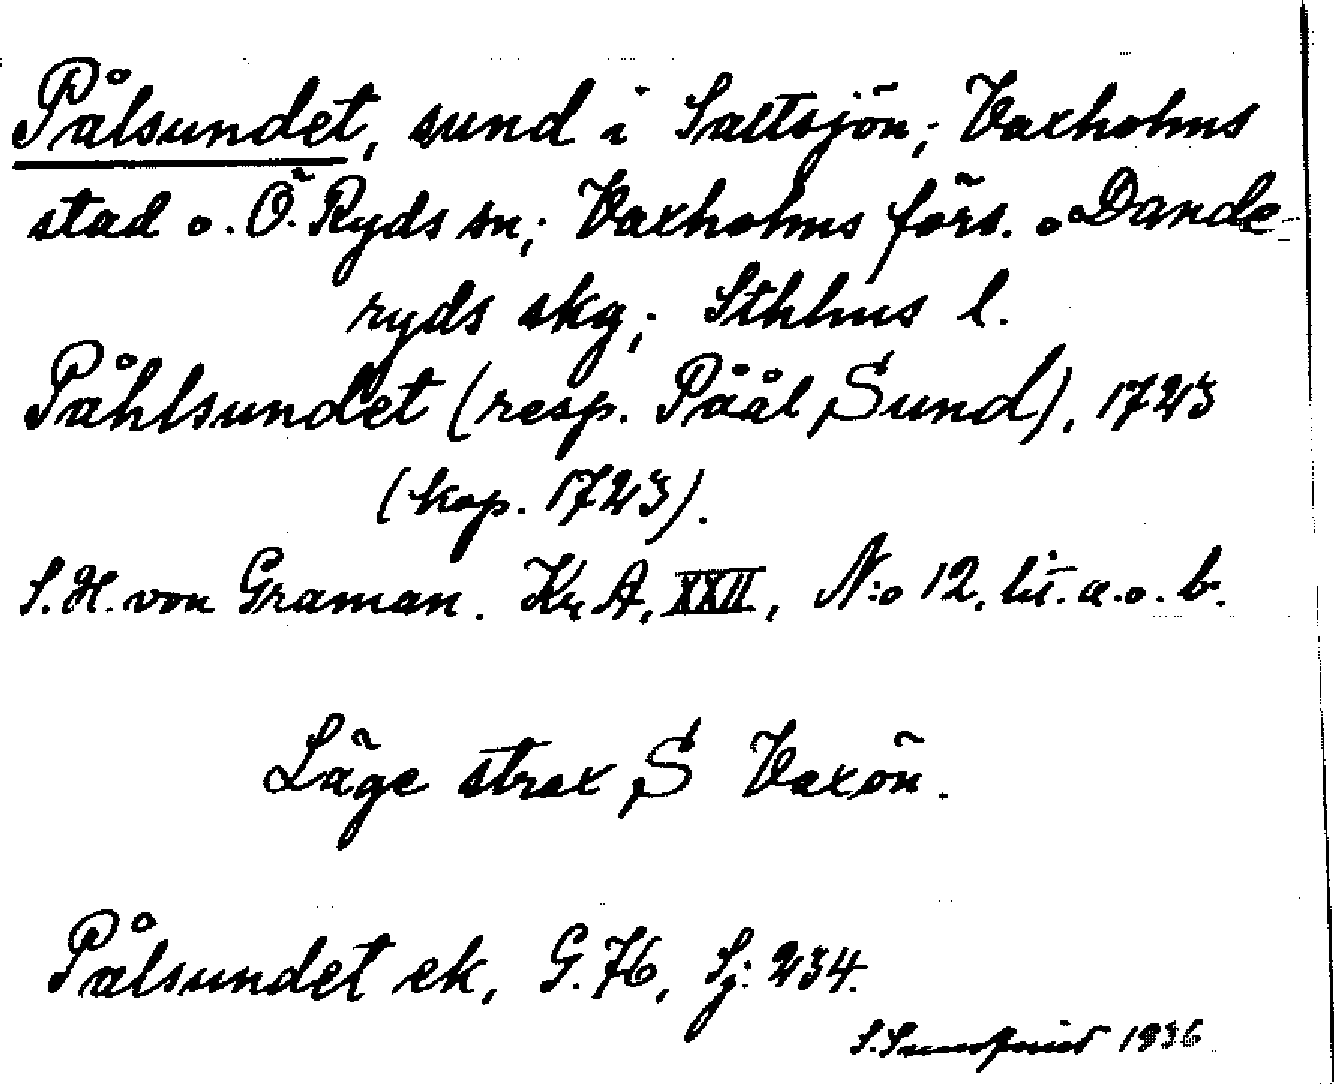 Pålsundet, sund i Saltsjön; Vaxholms
stad o. Ö. Ryds sn; Vaxholms förs. o Dande-
ryds skg; Sthlms l.
Påhlsundet (resp. Påål Sund), 1723
(kop. 1723).
S. H. von Graman. Kr. A, XXII, N:o 12. lit. a. o. b.
Läge strax S Vaxön.
Pålsundet ek, G. 76, Sj: 234.
S. Sundqvist 1936